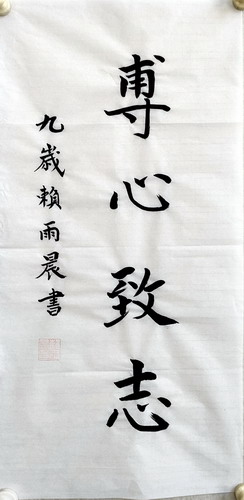 專心致志
九歲賴雨晨書